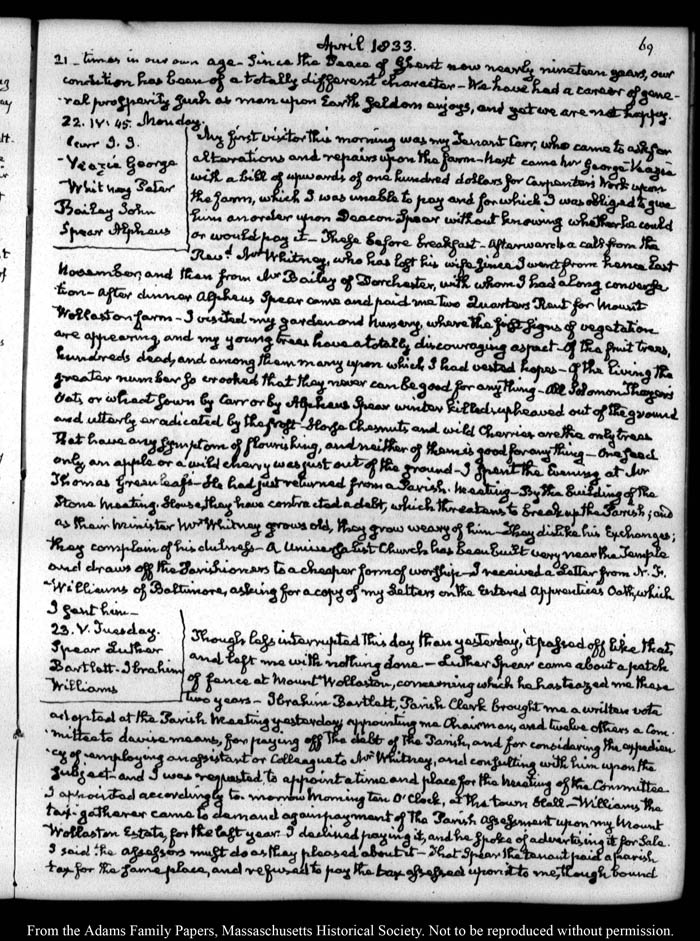 April 1833.
69
21_ times in our own age. Since the Peace of Ghent now nearly nineteen years, our
condition has been of a totally different character_ We have had a career of gene-
-ral prosperity such as man upon Earth seldom enjoys, and yet we are not happy.
22. IV: 45. Monday.
Carr J. J.
-Veazie George
-Whitney Peter
Bailey John
Spear Alpheus
My first visitor this morning was my Tenant Carr, who came to ask for
alterations and repairs upon the farm_ Next came Mr George Veazie
with a bill of upwards of one hundred dollars for Carpenters Work upon
the farm, which I was unable to pay and for which I was obliged to give
him an order upon Deacon Spear without knowing whether he could
or would pay it_ These before breakfast_ Afterwards a call from the
Revd. Mr Whitney, who has lost his wife since I went from hence last
November, and then from Mr Bailey of Dorchester, with whom I had a long conversa-
tion_ After dinner Alpheus Spear came and paid me two Quarters Rent for Mount
Wollaston farm_ I visited my garden and nursery, where the first signs of vegetation
are appearing, and my young trees have a totally discouraging aspect_ Of the fruit trees,
hundreds dead, and among them many upon which I had vested hopes_ Of the living the
greater number so crooked that they never can be good for any thing_ All Solomon Thayer's
Oats, or wheat sown by Carr or by Alpheus Spear winter killed; upheaved out of the ground
and utterly eradicated by the frost_ Horse Chesnuts and wild Cherries are the only trees
that have any symptom of flourishing, and neither of them is good for any thing_ One seed
only an apple or a wild cherry was just out of the ground_ I spent the Evening at Mr
Thomas Greenleaf's_ He had just returned from a Parish Meeting_ By the building of the
Stone Meeting House, they have contracted a debt, which threatens to break up the Parish; and
as their Minister Mr Whitney grows old, they grow weary of him_ They dislike his Exchanges;
they complain of his dulness_ A Universalist Church has been built very near the Temple
and draws off the Parishioners to a cheaper form of worship_ I received a Letter from N. F.
Williams of Baltimore, asking for a copy of my Letters on the Entered Apprentices Oath, which
I sent him_
23. V. Tuesday.
Spear Luther
Bartlett_ Ibrahim
Williams
Though less interrupted this day than yesterday, it passed off like that,
and left me with nothing done_ Luther Spear came about a patch
of fence at Mount Wollaston, concerning which he has teazed me these
two years_ Ibrahim Bartlett, Parish Clerk brought me a written vote
adopted at the Parish Meeting yesterday, appointing me Chairman, and twelve others a Com-
-mittee to devise means, for paying off the debt of the Parish, and for considering the expedien-
-cy of employing an assistant or Colleague to Mr Whitney, and consulting with him upon the
subject_ and I was requested to appoint a time and place for the meeting of the Committee
I appointed accordingly to-morrow morning ten O'Clock, at the town Hall_ Williams the
tax-gatherer came to demand again payment of the Parish Assessment upon my Mount
Wollaston Estate, for the last year. I declined paying it, and he spoke of advertising it for Sale.
I said the assessors must do as they pleased about it_ That Spear the tenant paid a parish
tax for the same place, and refused to pay the tax assessed upon it to me, though bound
From the Adams Family Papers, Massachusetts Historical Society. Not to be reproduced without permission.